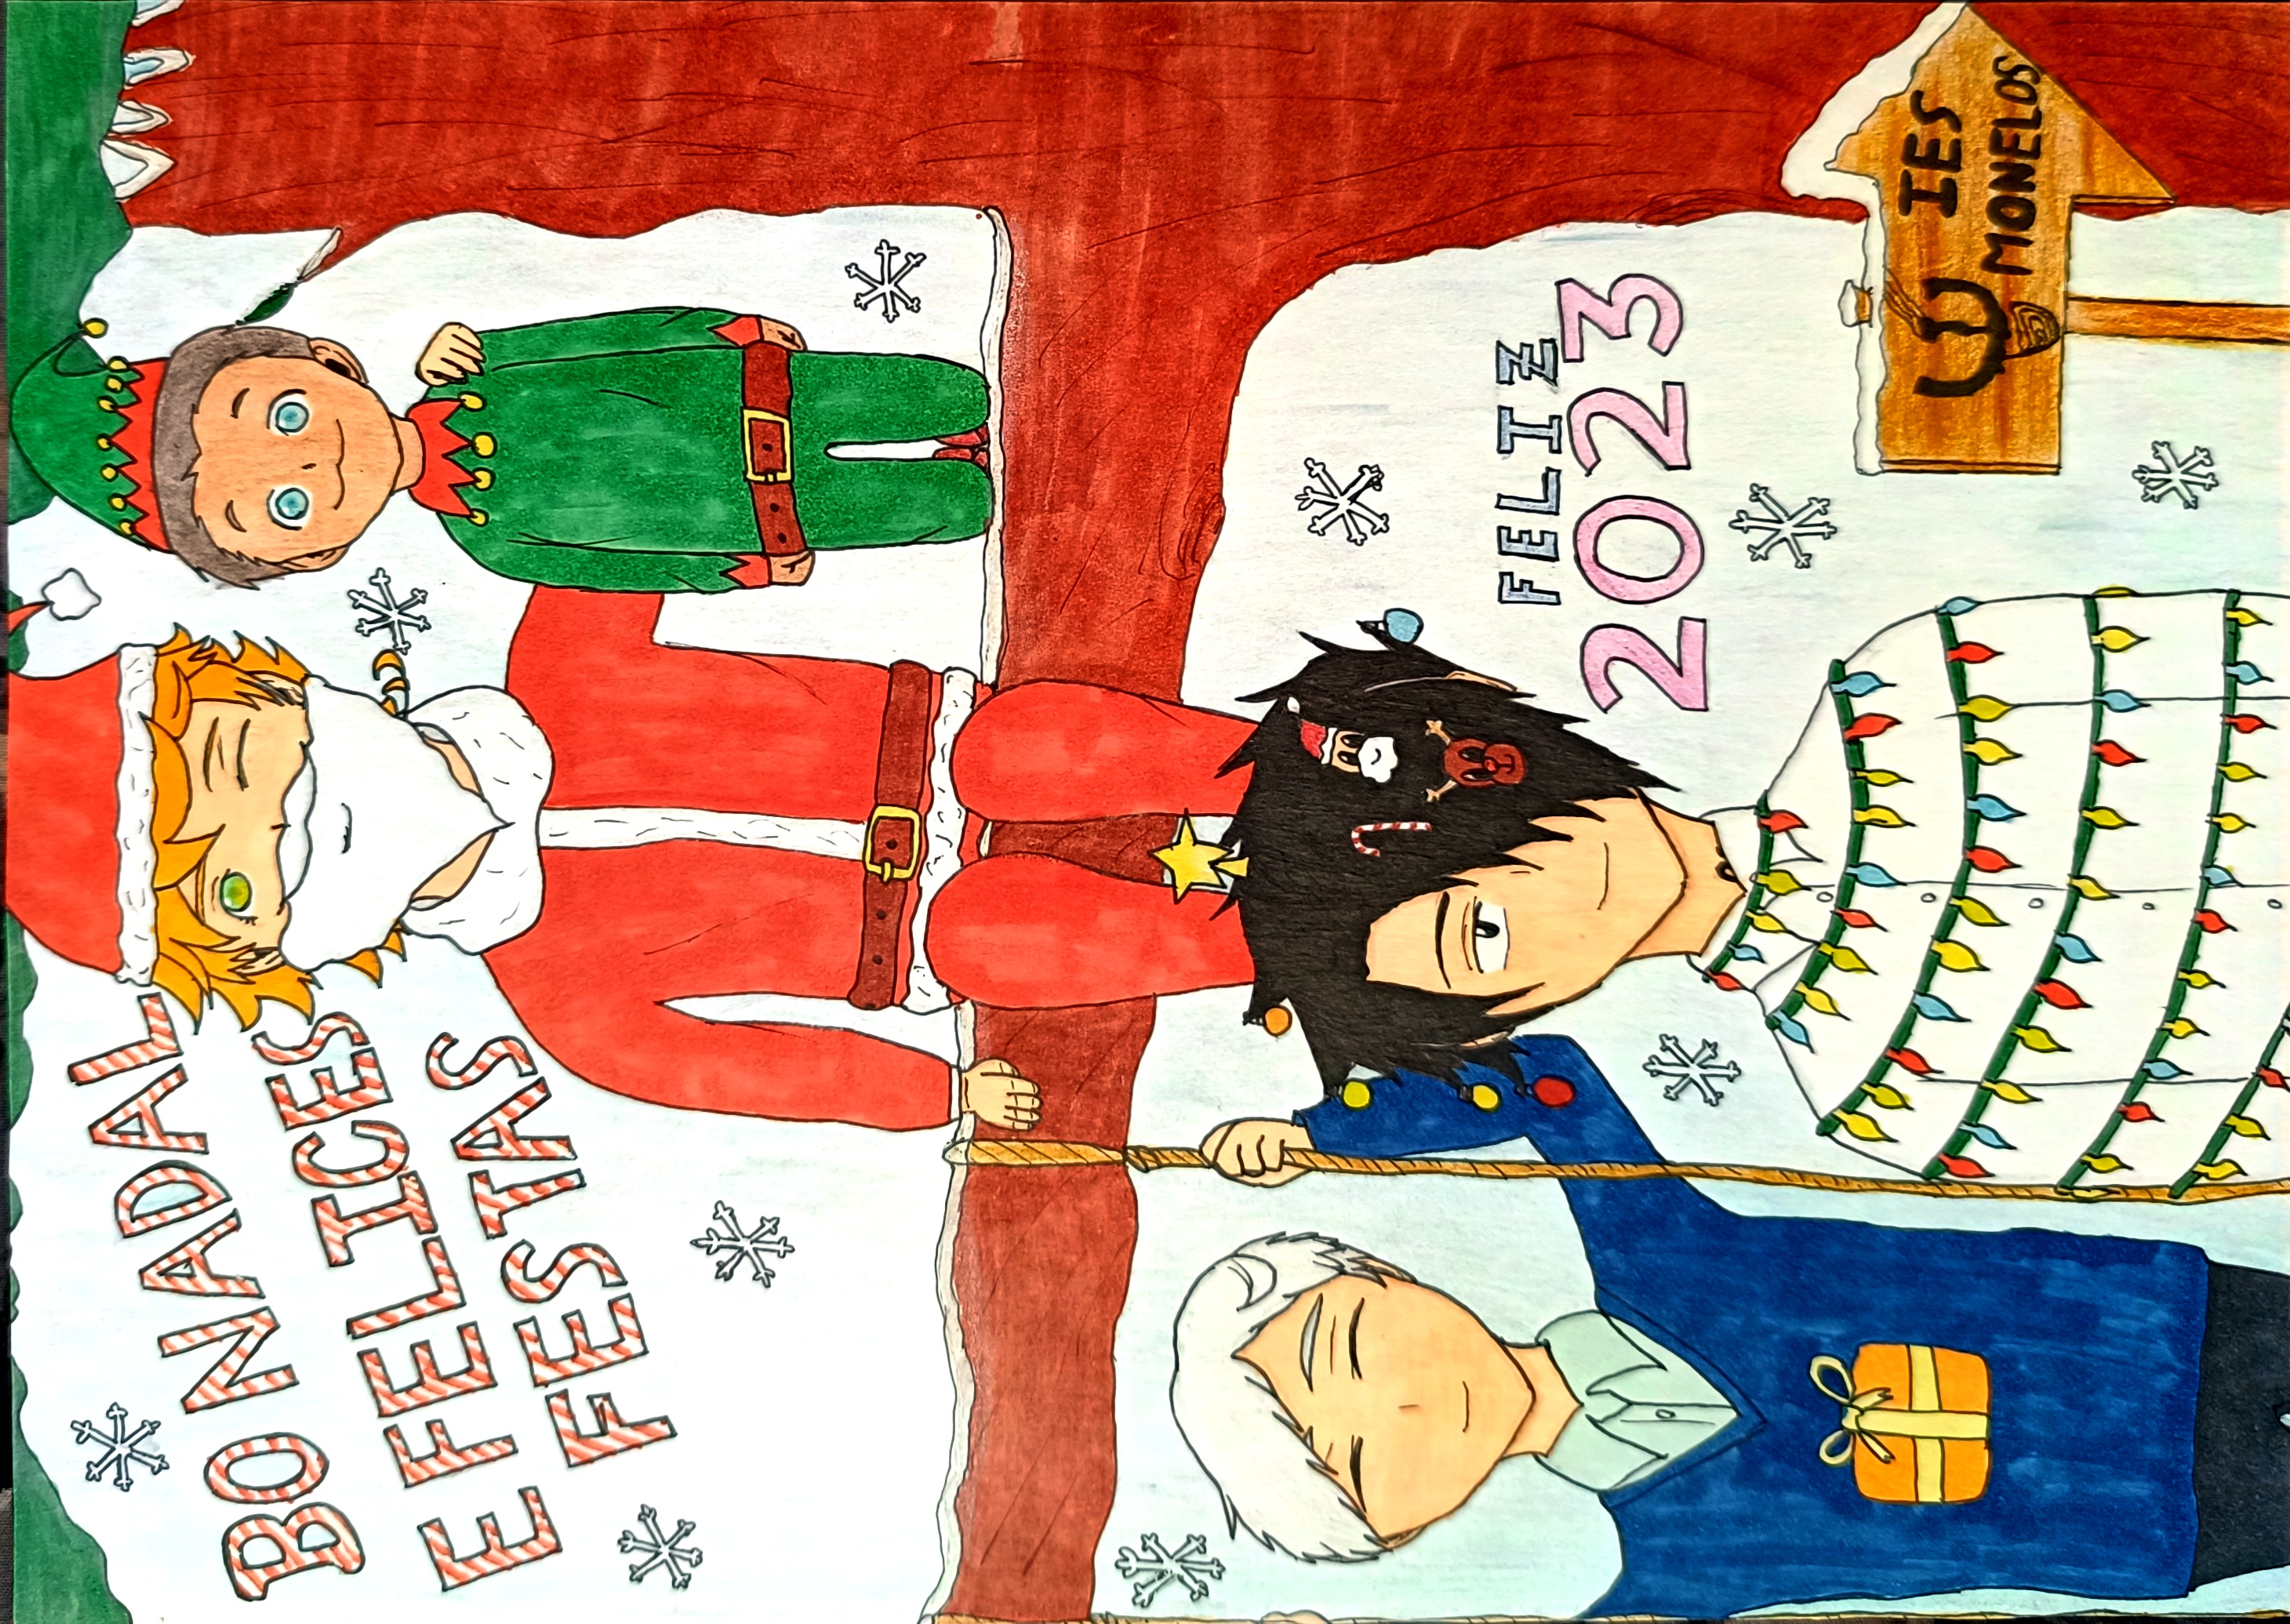 BO NADAL
E FELICES
FESTAS
FELIZ
2023
IES
MONELOS